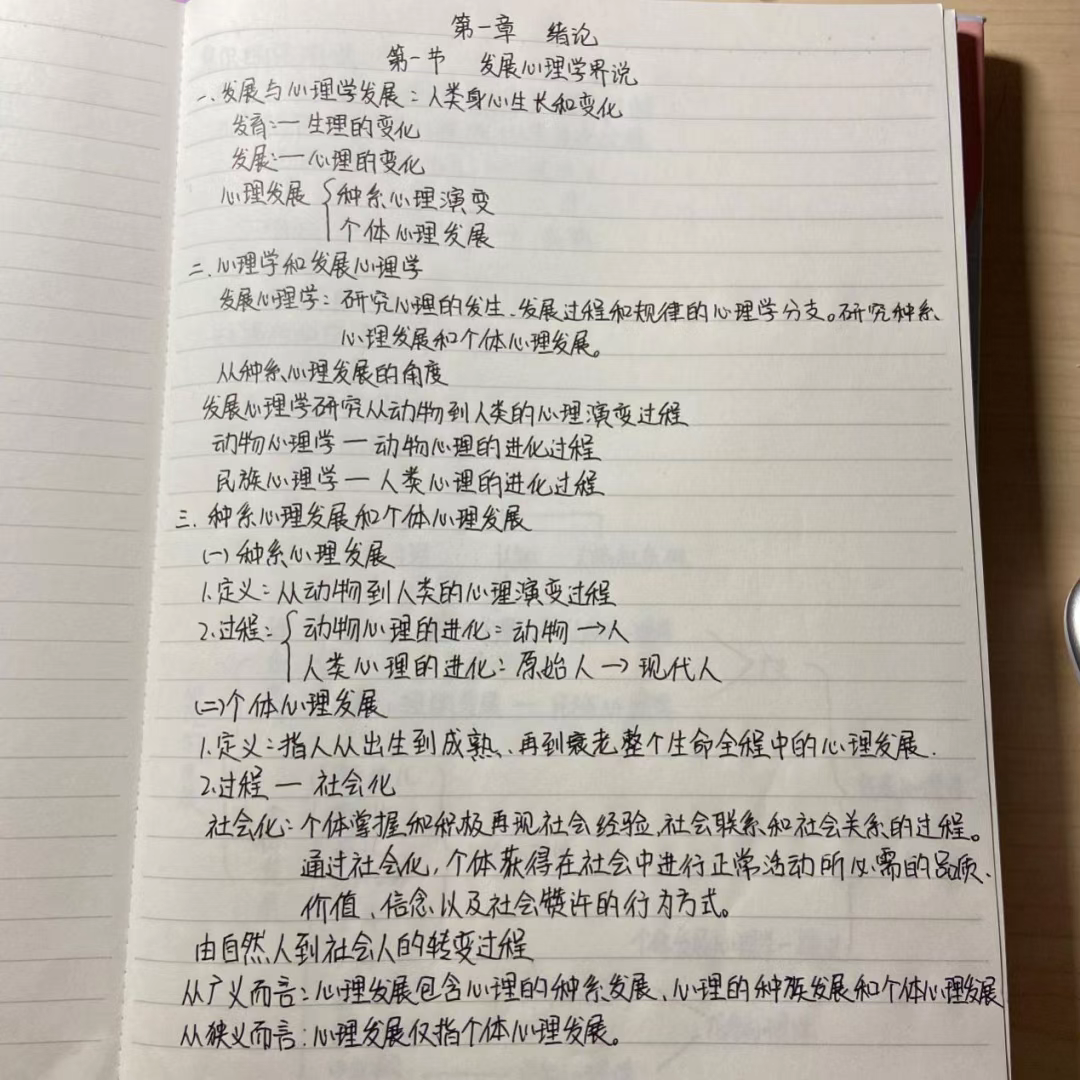 第一章 绪论
第一节 发展心理学界说
一、发展与心理学发展：人类身心生长和变化
发育：一 生理的变化
发展：一 心理的变化
心理发展 { 种系心理演变
个体心理发展
二、心理学和发展心理学
发展心理学：研究心理的发生、发展过程和规律的心理学分支。研究种系
心理发展和个体心理发展。
从种系心理发展的角度
发展心理学研究从动物到人类的心理演变过程
动物心理学 — 动物心理的进化过程
民族心理学 — 人类心理的进化过程
三、种系心理发展和个体心理发展
(一) 种系心理发展
1.定义：从动物到人类的心理演变过程
2.过程：{ 动物心理的进化：动物 → 人
人类心理的进化：原始人 → 现代人
(二)个体心理发展
1.定义：指人从出生到成熟、再到衰老整个生命全程中的心理发展.
2.过程 — 社会化
社会化：个体掌握和积极再现社会经验,社会联系和社会关系的过程。
通过社会化,个体获得在社会中进行正常活动所必需的品质、
价值、信念以及社会赞许的行为方式。
由自然人到社会人的转变过程
从广义而言：心理发展包含心理的种系发展、心理的种族发展和个体心理发展
从狭义而言：心理发展仅指个体心理发展。